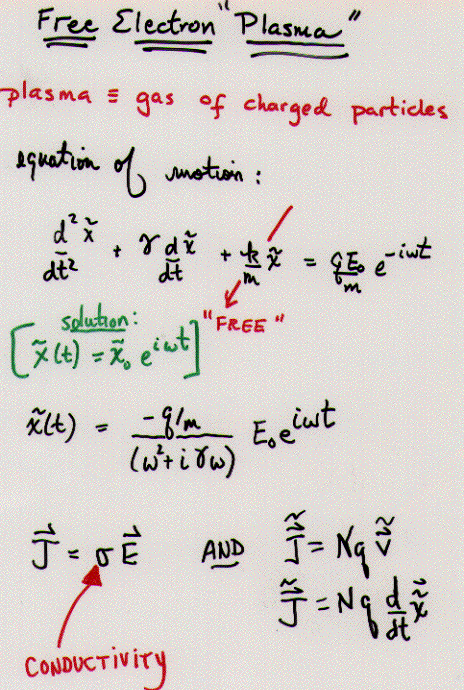 Free Electron "Plasma"
plasma ≡ gas of charged particles
equation of motion:
d²x̃/dt² + γ dx̃/dt + k/m x̃ = qE₀/m e^-iωt
solution:
"FREE"
[x̃(t) = x̃₀ e^iωt]
x̃(t) = -q/m / (ω²+iγω) E₀e^iωt
J⃗ = σE⃗ AND J̃⃗ = Nqṽ⃗
J̃⃗ = Nq d/dt x̃⃗
CONDUCTIVITY